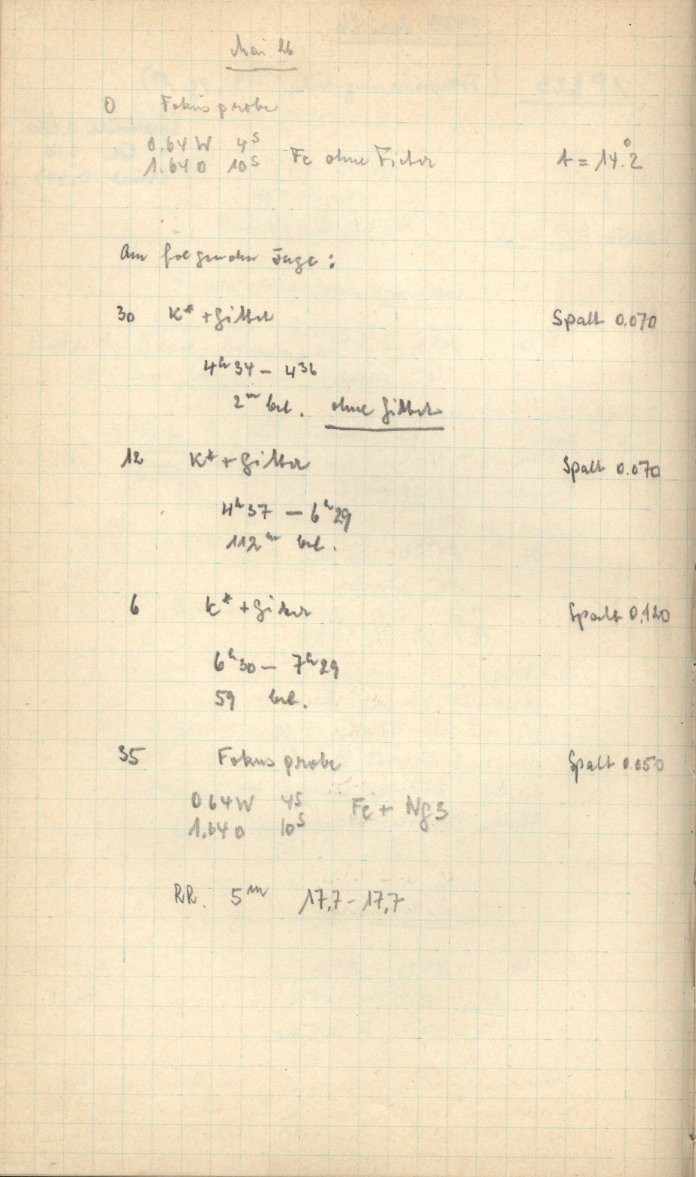 Mai 26
0 Fokusprobe
0.64 W 4ˢ
1.64 O 10ˢ Fe ohne Filter t = 14.°2
Am folgenden Tage:
30 K* + Gitter Spalt 0.070
4ʰ34 – 4 36
2ᵐ bel. ohne Gitter
12 K* + Gitter Spalt 0.070
4ʰ37 – 6ʰ29
112ᵐ bel.
6 K* + Gitter Spalt 0.120
6ʰ30 – 7ʰ29
59 bel.
35 Fokusprobe Spalt 0.050
0.64 W 4ˢ Fe + Ng3
1.64 O 10ˢ
RR. 5ᵐ 17,7 – 17,7